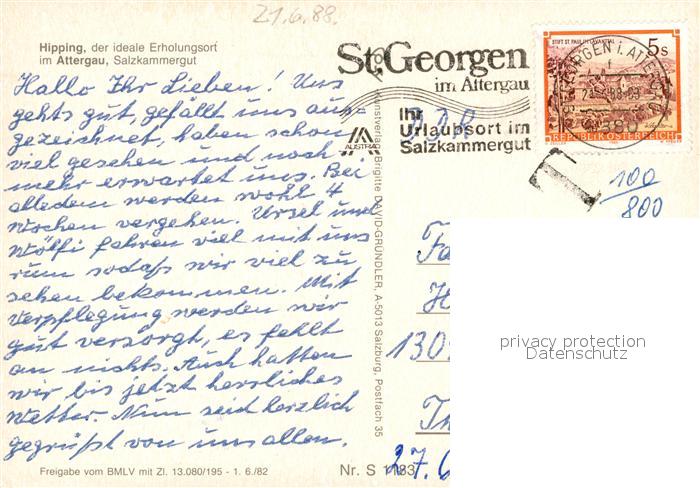 21.6.88.
Hipping, der ideale Erholungsort
im Attergau, Salzkammergut
Hallo Ihr Lieben! Uns
gehts gut, gefällt uns aus-
gezeichnet, haben schon
viel gesehen und noch
mehr erwartet uns. Bei
alledem werden wohl 4
Wochen vergehen. Ursel und
Wölfi fahren viel mit uns
rum sodaß wir viel zu
sehen bekommen. Mit
Verpflegung werden wir
gut versorgt, es fehlt
an nichts. Auch hatten
wir bis jetzt herrliches
Wetter. Nun seid herzlich
gegrüßt von uns allen.
Freigabe vom BMLV mit Zl. 13.080/195 - 1. 6./82
Nr. S 1183
Kunstverlag Brigitte DAVID-GRÜNDLER, A-5013 Salzburg, Postfach 35
St. Georgen
im Attergau
Ihr
Urlaubsort im
Salzkammergut
AUSTRIA
DDR
STIFT ST. PAUL IM LAVANTTAL
5 S
REPUBLIK ÖSTERREICH
T
100
800
Fa
H
130
Th
27.6
privacy protection
Datenschutz